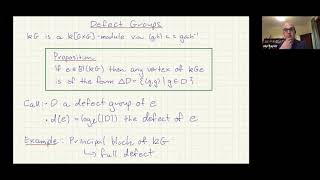 Defect Groups
kG is a k[G×G]-module via (g,h)·x = gxh⁻¹
Proposition
If e∈Bl(kG) then any vertex of kGe
is of the form ΔD = {(g,g) | g∈D}
Call: · D a defect group of e
· d(e) = logₚ(|D|) the defect of e
Example: Principal block of kG
↳ full defect